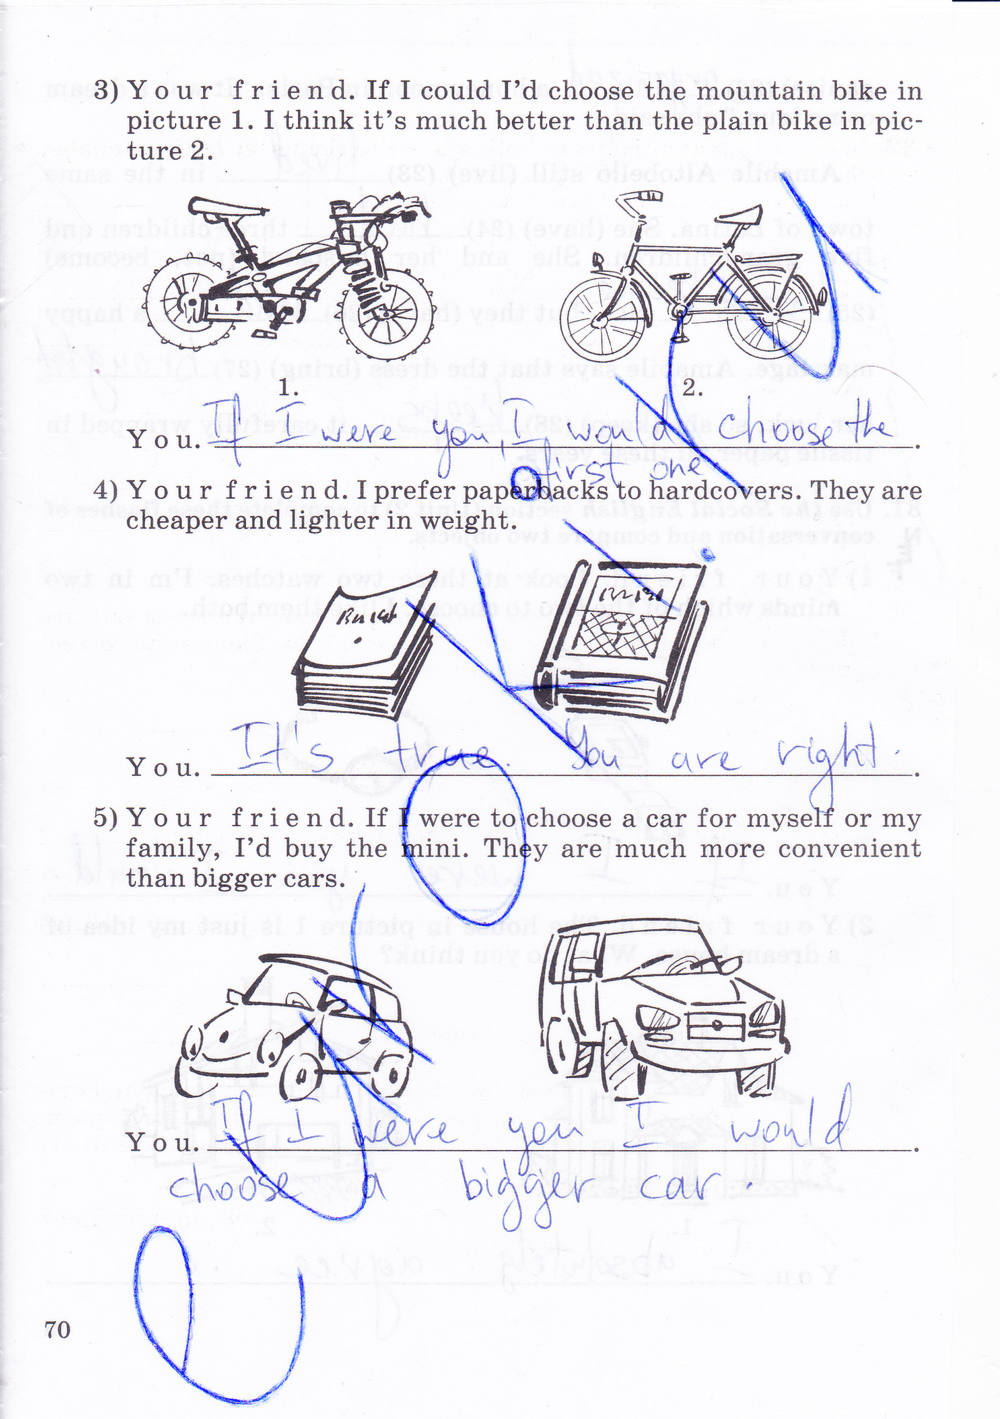 3) Your friend. If I could I'd choose the mountain bike in
picture 1. I think it's much better than the plain bike in pic-
ture 2.
1.
2.
You. If I were you, I would choose the
first one.
4) Your friend. I prefer paperbacks to hardcovers. They are
cheaper and lighter in weight.
You. It's true. You are right.
5) Your friend. If I were to choose a car for myself or my
family, I'd buy the mini. They are much more convenient
than bigger cars.
You. If I were you I would
choose a bigger car.
70